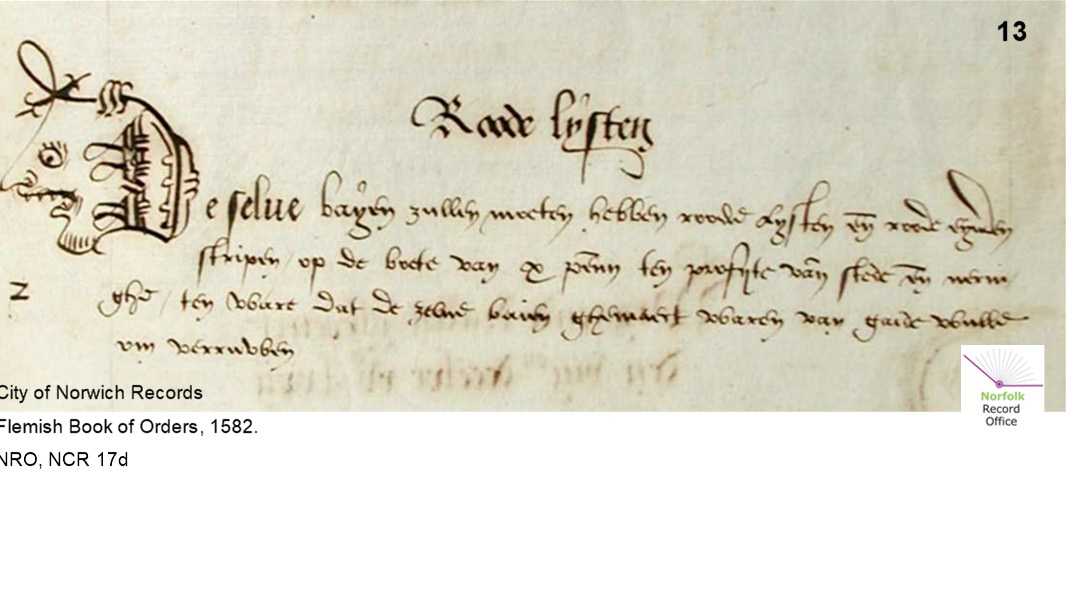 13
Roode lysten
De selue bayen zullen moeten hebben roode lysten en̄ roode eynden
stripen, op de boete van x penn ten profyte van stede en̄ menin
2
ghe, ten waere dat de zelue baien ghemaect waren van gaide wulle
om verruwben
City of Norwich Records
Flemish Book of Orders, 1582.
NRO, NCR 17d
Norfolk
Record
Office